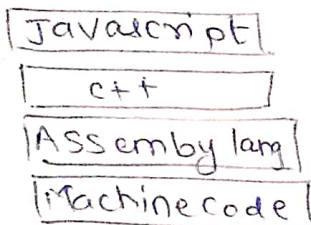 Javascript
c++
Assemby lang
Machine code